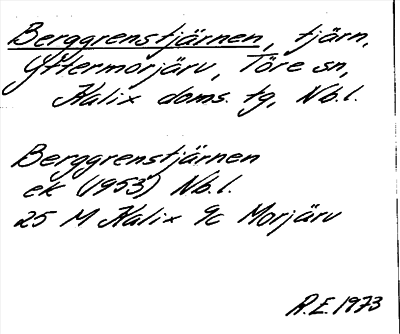 Berggrenstjärnen, tjärn,
Yttermorjärv, Töre sn,
Kalix doms. tg, Nb.l.
Berggrenstjärnen
ek (1953) Nb.l.
25 M Kalix 9c Morjärv
R.E. 1973